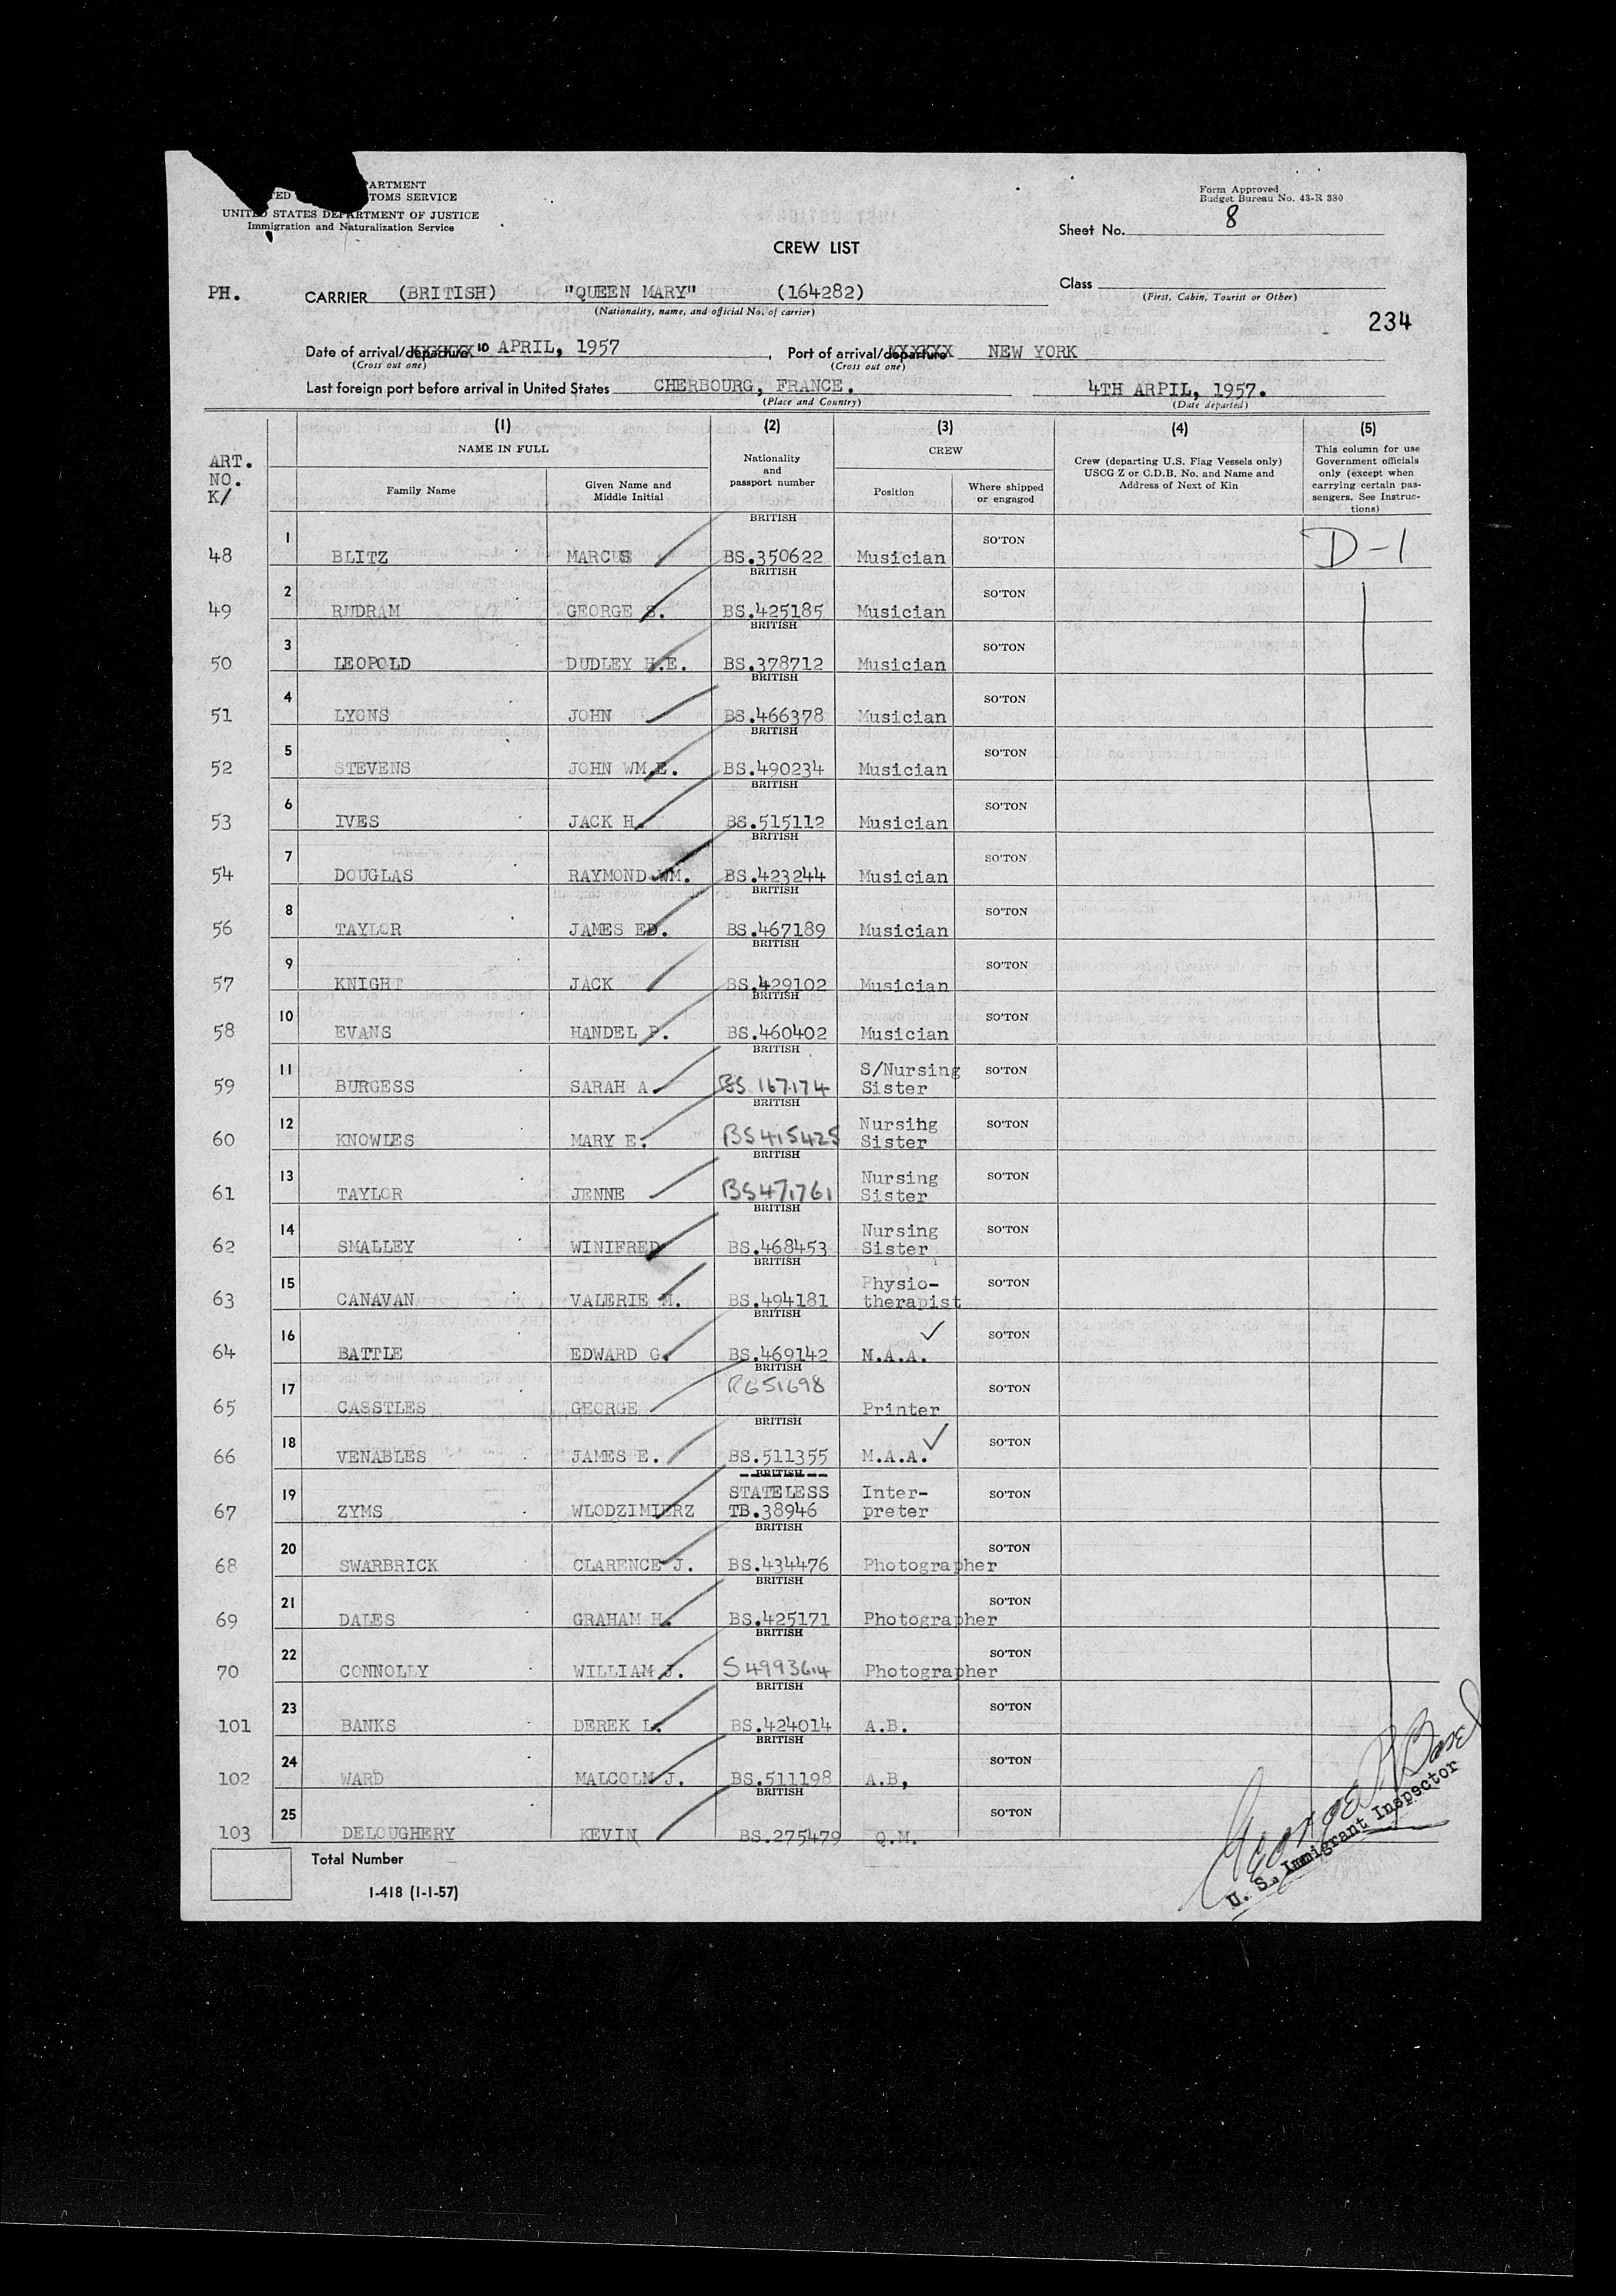 ARTMENT
TED TOMS SERVICE
UNITED STATES DEPARTMENT OF JUSTICE
Immigration and Naturalization Service
Form Approved
Budget Bureau No. 43-R 380
Sheet No. 8
CREW LIST
PH. CARRIER (BRITISH) "QUEEN MARY" (164282)
(Nationality, name, and official No. of carrier)
Class
(First, Cabin, Tourist or Other)
234
Date of arrival/departure 10 APRIL, 1957, Port of arrival/departure NEW YORK
(Cross out one) (Cross out one)
Last foreign port before arrival in United States CHERBOURG, FRANCE. 4TH ARPIL, 1957.
(Place and Country) (Date departed)
ART. NO. K/
(1) NAME IN FULL
Family Name
Given Name and Middle Initial
(2) Nationality and passport number
(3) CREW
Position
Where shipped or engaged
(4) Crew (departing U.S. Flag Vessels only) USCG Z or C.D.B. No. and Name and Address of Next of Kin
(5) This column for use Government officials only (except when carrying certain passengers. See Instructions)
48 1 BLITZ MARCUS BRITISH BS.350622 Musician SO'TON D-1
49 2 RUDRAM GEORGE S. BRITISH BS.425185 Musician SO'TON
50 3 LEOPOLD DUDLEY H.E. BRITISH BS.378712 Musician SO'TON
51 4 LYONS JOHN BRITISH BS.466378 Musician SO'TON
52 5 STEVENS JOHN WM.E. BRITISH BS.490234 Musician SO'TON
53 6 IVES JACK H. BRITISH BS.515112 Musician SO'TON
54 7 DOUGLAS RAYMOND WM. BRITISH BS.423244 Musician SO'TON
56 8 TAYLOR JAMES ED. BRITISH BS.467189 Musician SO'TON
57 9 KNIGHT JACK BRITISH BS.429102 Musician SO'TON
58 10 EVANS HANDEL P. BRITISH BS.460402 Musician SO'TON
59 11 BURGESS SARAH A. BRITISH BS 167174 S/Nursing Sister SO'TON
60 12 KNOWLES MARY E. BRITISH BS415425 Nursing Sister SO'TON
61 13 TAYLOR JENNE BRITISH BS471761 Nursing Sister SO'TON
62 14 SMALLEY WINIFRED BRITISH BS.468453 Nursing Sister SO'TON
63 15 CANAVAN VALERIE M. BRITISH BS.494181 Physio-therapist SO'TON
64 16 BATTLE EDWARD G. BRITISH BS.469142 M.A.A. ✓ SO'TON
65 17 CASSTLES GEORGE BRITISH R651698 Printer SO'TON
66 18 VENABLES JAMES E. BRITISH BS.511355 M.A.A. ✓ SO'TON
67 19 ZYMS WLODZIMIERZ BRITISH STATELESS TB.38946 Inter-preter SO'TON
68 20 SWARBRICK CLARENCE J. BRITISH BS.434476 Photographer SO'TON
69 21 DALES GRAHAM H. BRITISH BS.425171 Photographer SO'TON
70 22 CONNOLLY WILLIAM J. BRITISH S499364 Photographer SO'TON
101 23 BANKS DEREK L. BRITISH BS.424014 A.B. SO'TON
102 24 WARD MALCOLM J. BRITISH BS.511198 A.B, SO'TON
103 25 DELOUGHERY KEVIN BRITISH BS.275479 Q.M. SO'TON
U. S. Immigrant Inspector
Total Number
I-418 (1-1-57)